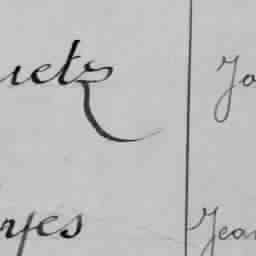 uetz Jo
ryes Jean